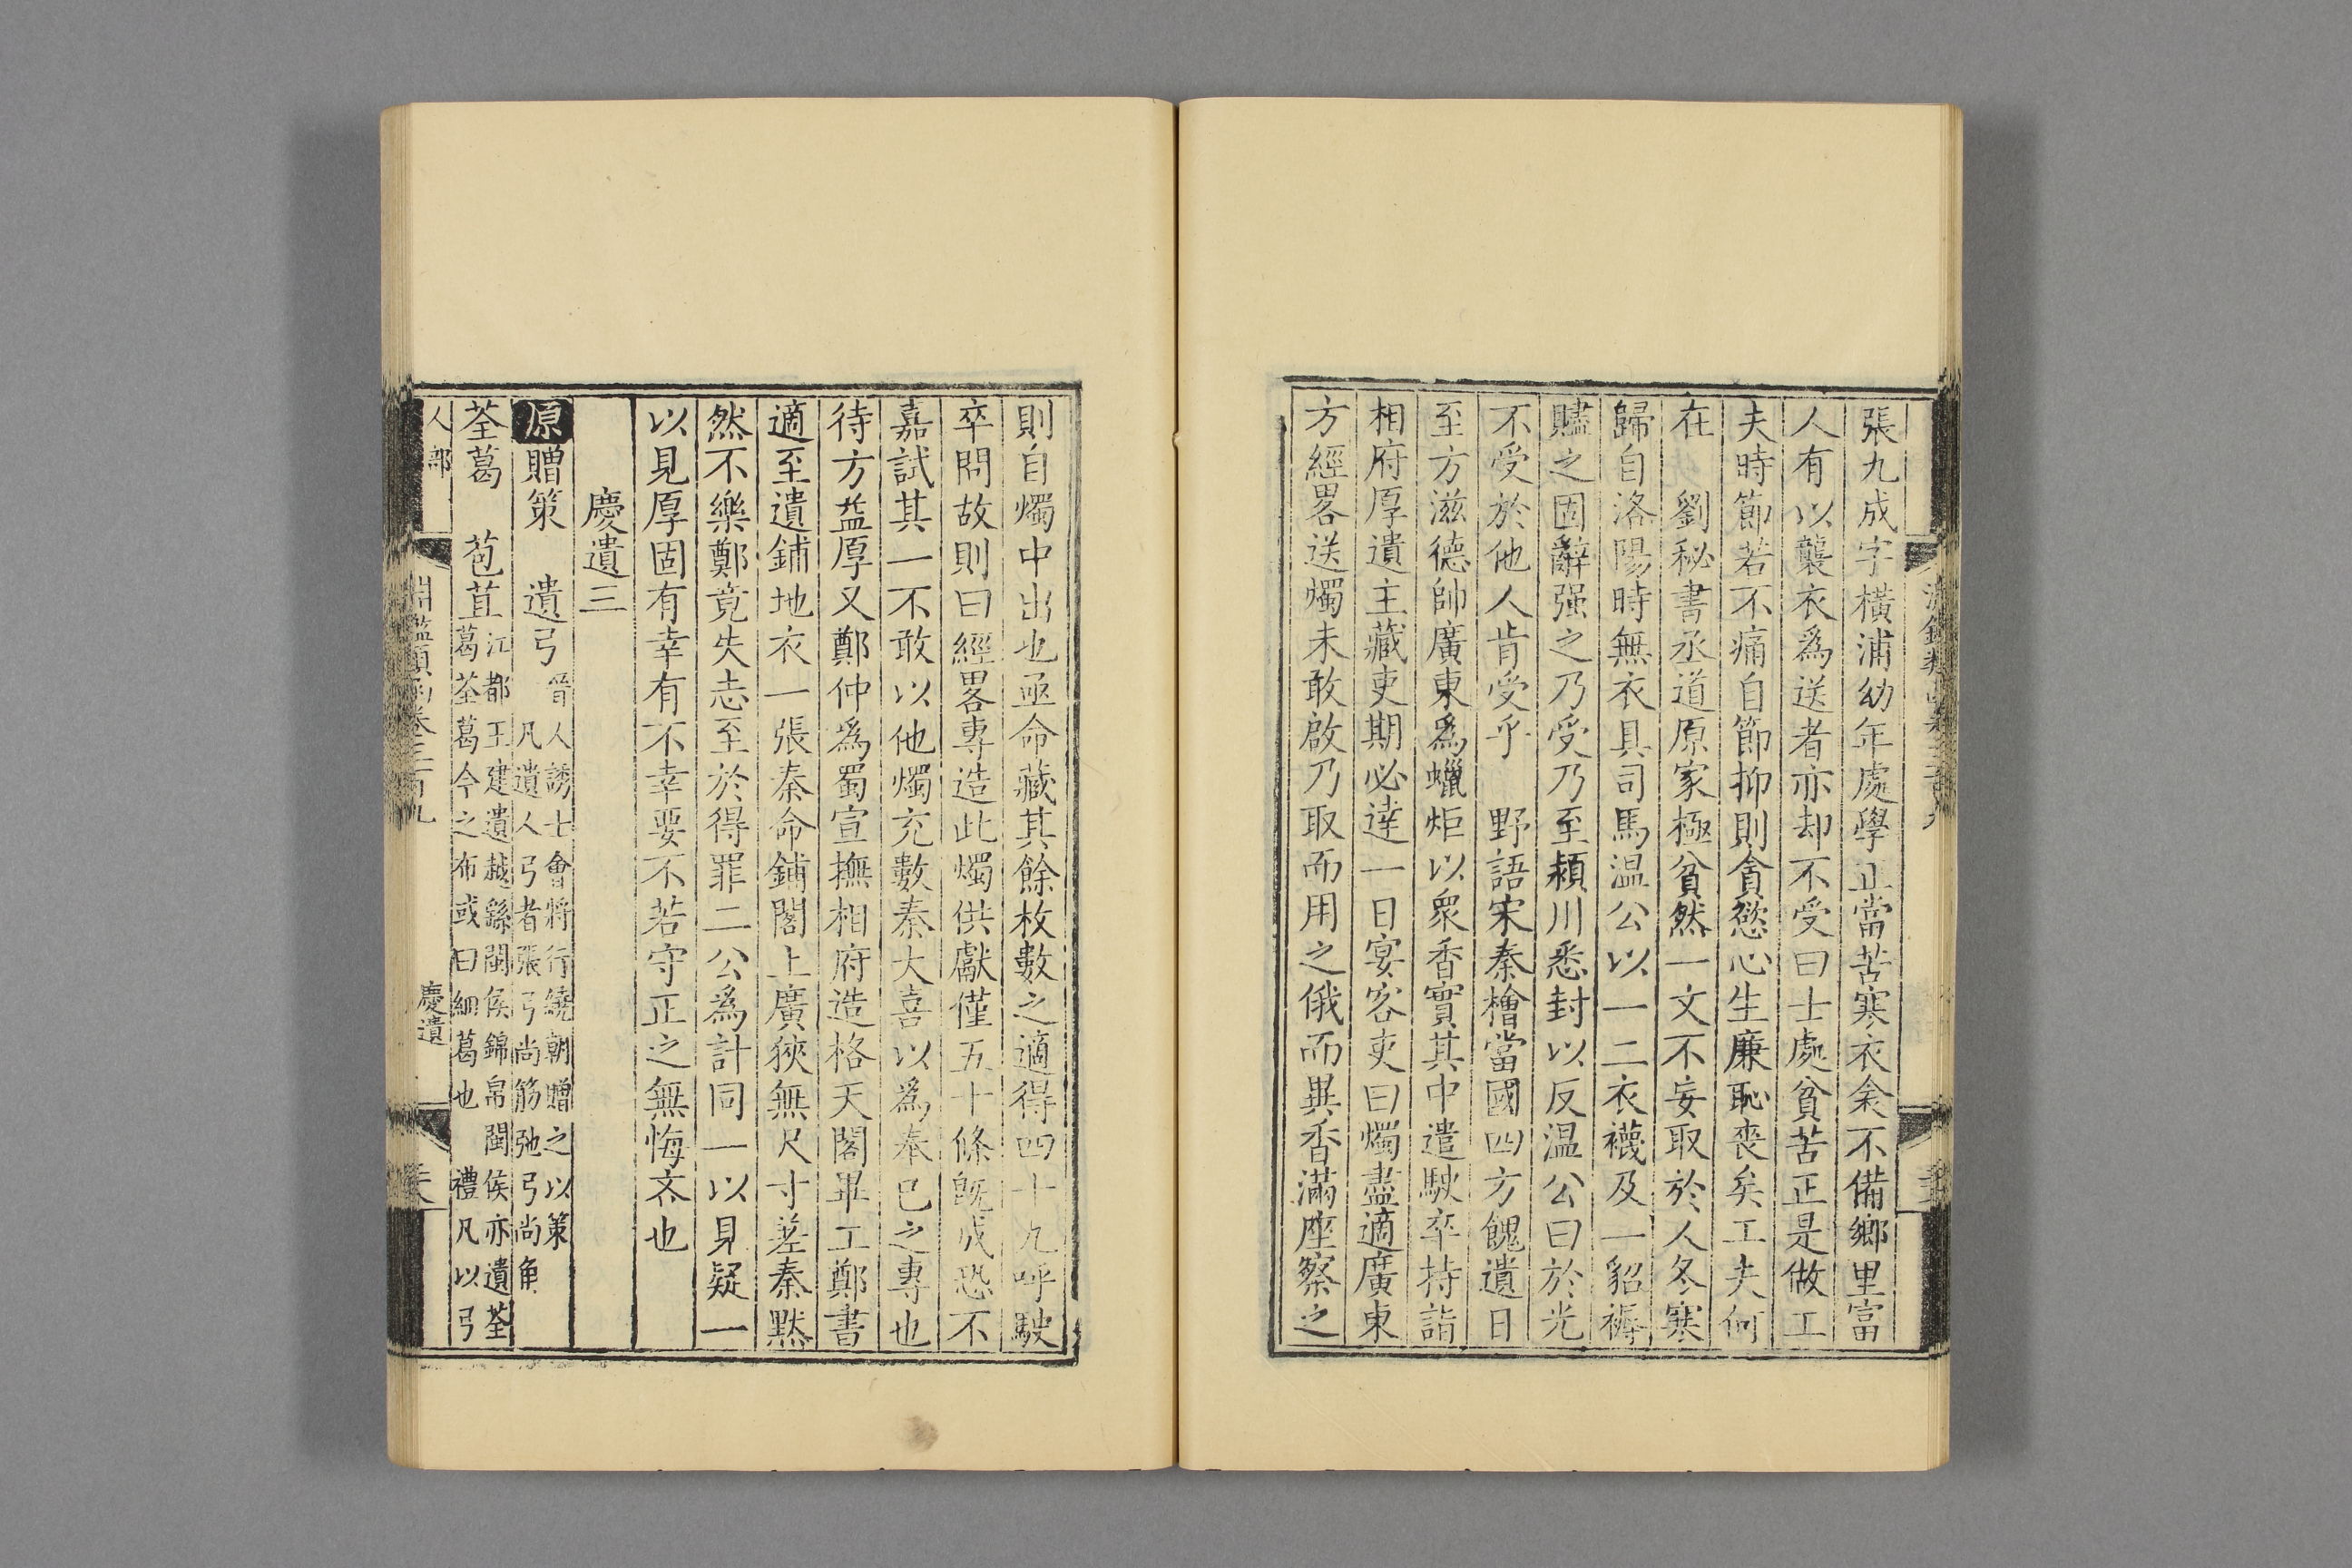 張九成字橫浦幼年處學正當苦寒衣衾不備鄉里富
人有以襲衣爲送者亦却不受曰士處貧苦正是做工
夫時節若不痛自節抑則貪慾心生廉恥喪矣工夫何
在　劉秘書丞道原家極貧然一文不妄取於人冬寒
歸自洛陽時無衣具司馬温公以一二衣襪及一貂褥
贐之固辭强之乃受乃至潁川悉封以反温公曰於光
不受於他人肯受乎　野語宋秦檜當國四方餽遺日
至方滋德帥廣東爲蠟炬以衆香實其中遣駛卒持詣
相府厚遺主藏吏期必達一日宴客吏曰燭盡適廣東
方經畧送燭未敢啟乃取而用之俄而異香滿座察之
則自燭中出也亟命藏其餘枚數之適得四十九呼駛
卒問故則曰經畧專造此燭供獻僅五十條旣成恐不
嘉試其一不敢以他燭充數秦大喜以爲奉巳之專也
待方益厚又鄭仲爲蜀宣撫相府造格天閣畢工鄭書
適至遺鋪地衣一張秦命鋪閣上廣狹無尺寸差秦默
然不樂鄭竟失志至於得罪二公爲計同一以見疑一
以見厚固有幸有不幸要不若守正之無悔吝也
慶遺三
原贈策　遺弓晉人誘士會將行繞朝贈之以策
凡遺人弓者張弓尚筋弛弓尚角
荃葛　苞苴江都王建遺越繇閩侯錦帛閩侯亦遺荃
葛荃葛今之布或曰細葛也　禮凡以弓
人部
淵鑑類函卷三百九
慶遺